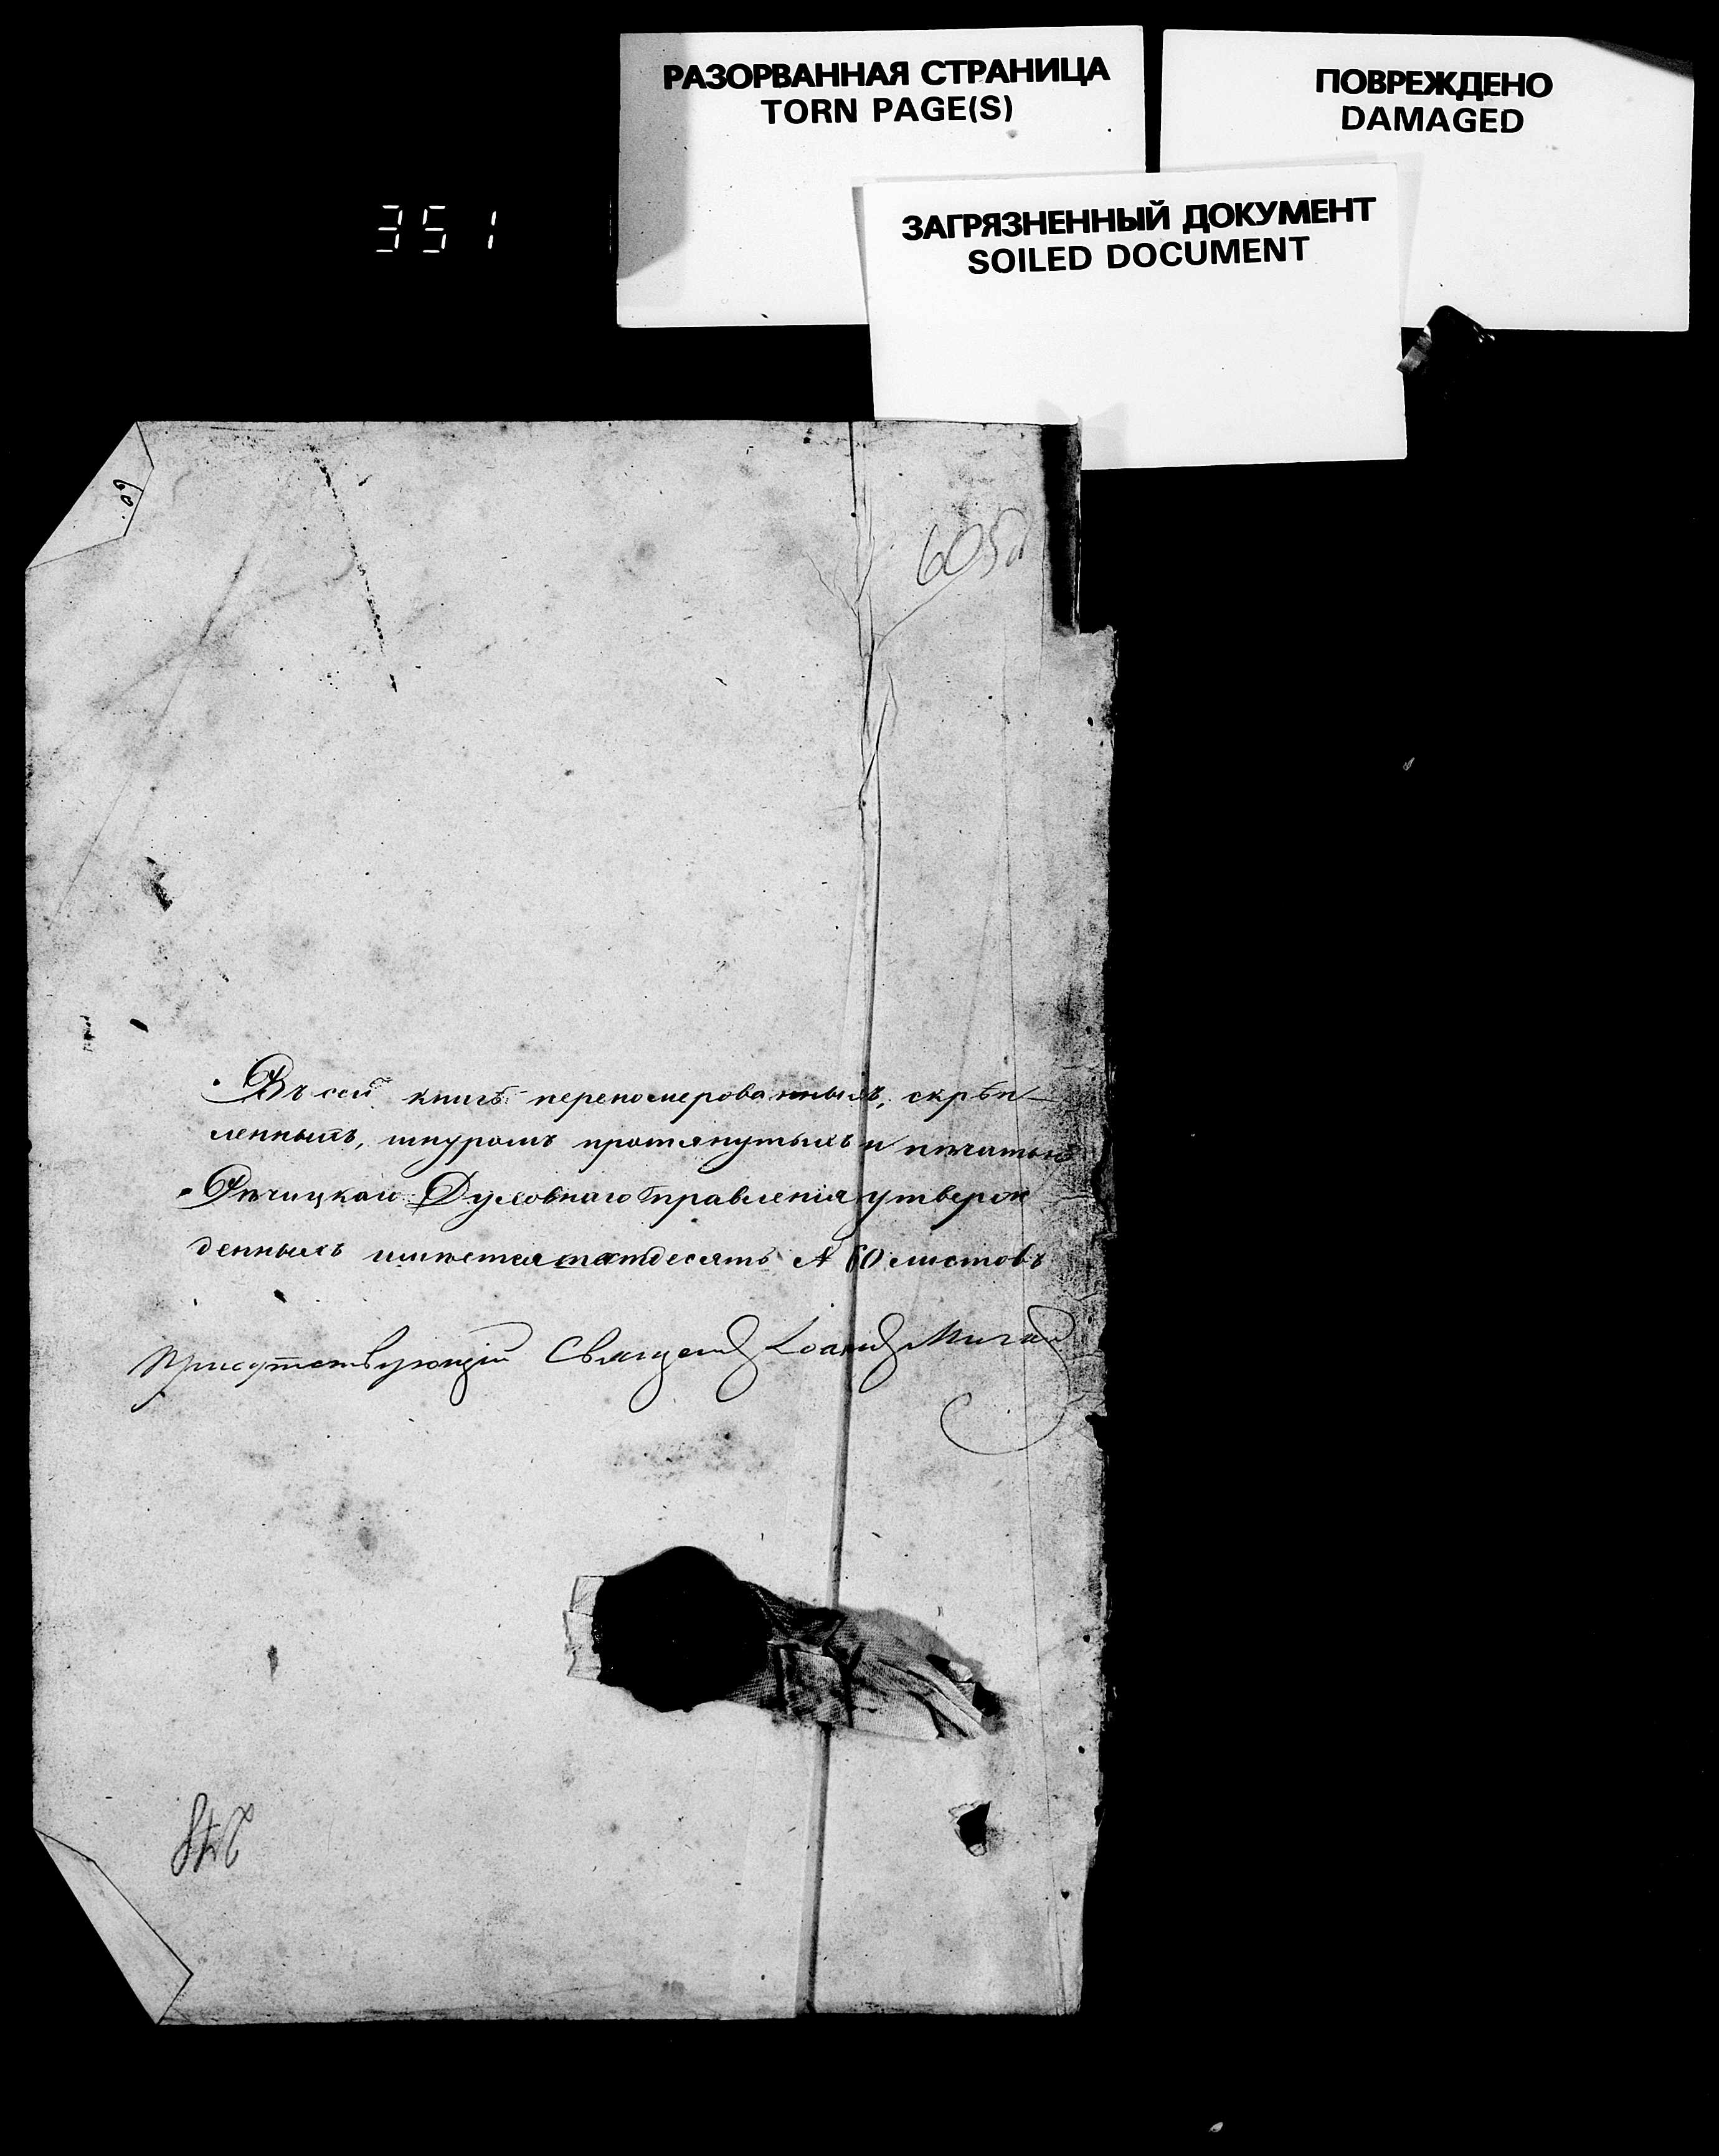 РАЗОРВАННАЯ СТРАНИЦА
TORN PAGE(S)
ПОВРЕЖДЕНО
DAMAGED
ЗАГРЯЗНЕННЫЙ ДОКУМЕНТ
SOILED DOCUMENT
351
60.
Въ сей книгѣ переномерованныхъ, скрѣп
ленныхъ, шнуромъ протянутыхъ и печатью
Рѣчицкаго Духовнаго Правленія утверж
денныхъ имѣется 60 листовъ
Присутствующій Священ Іоаннъ